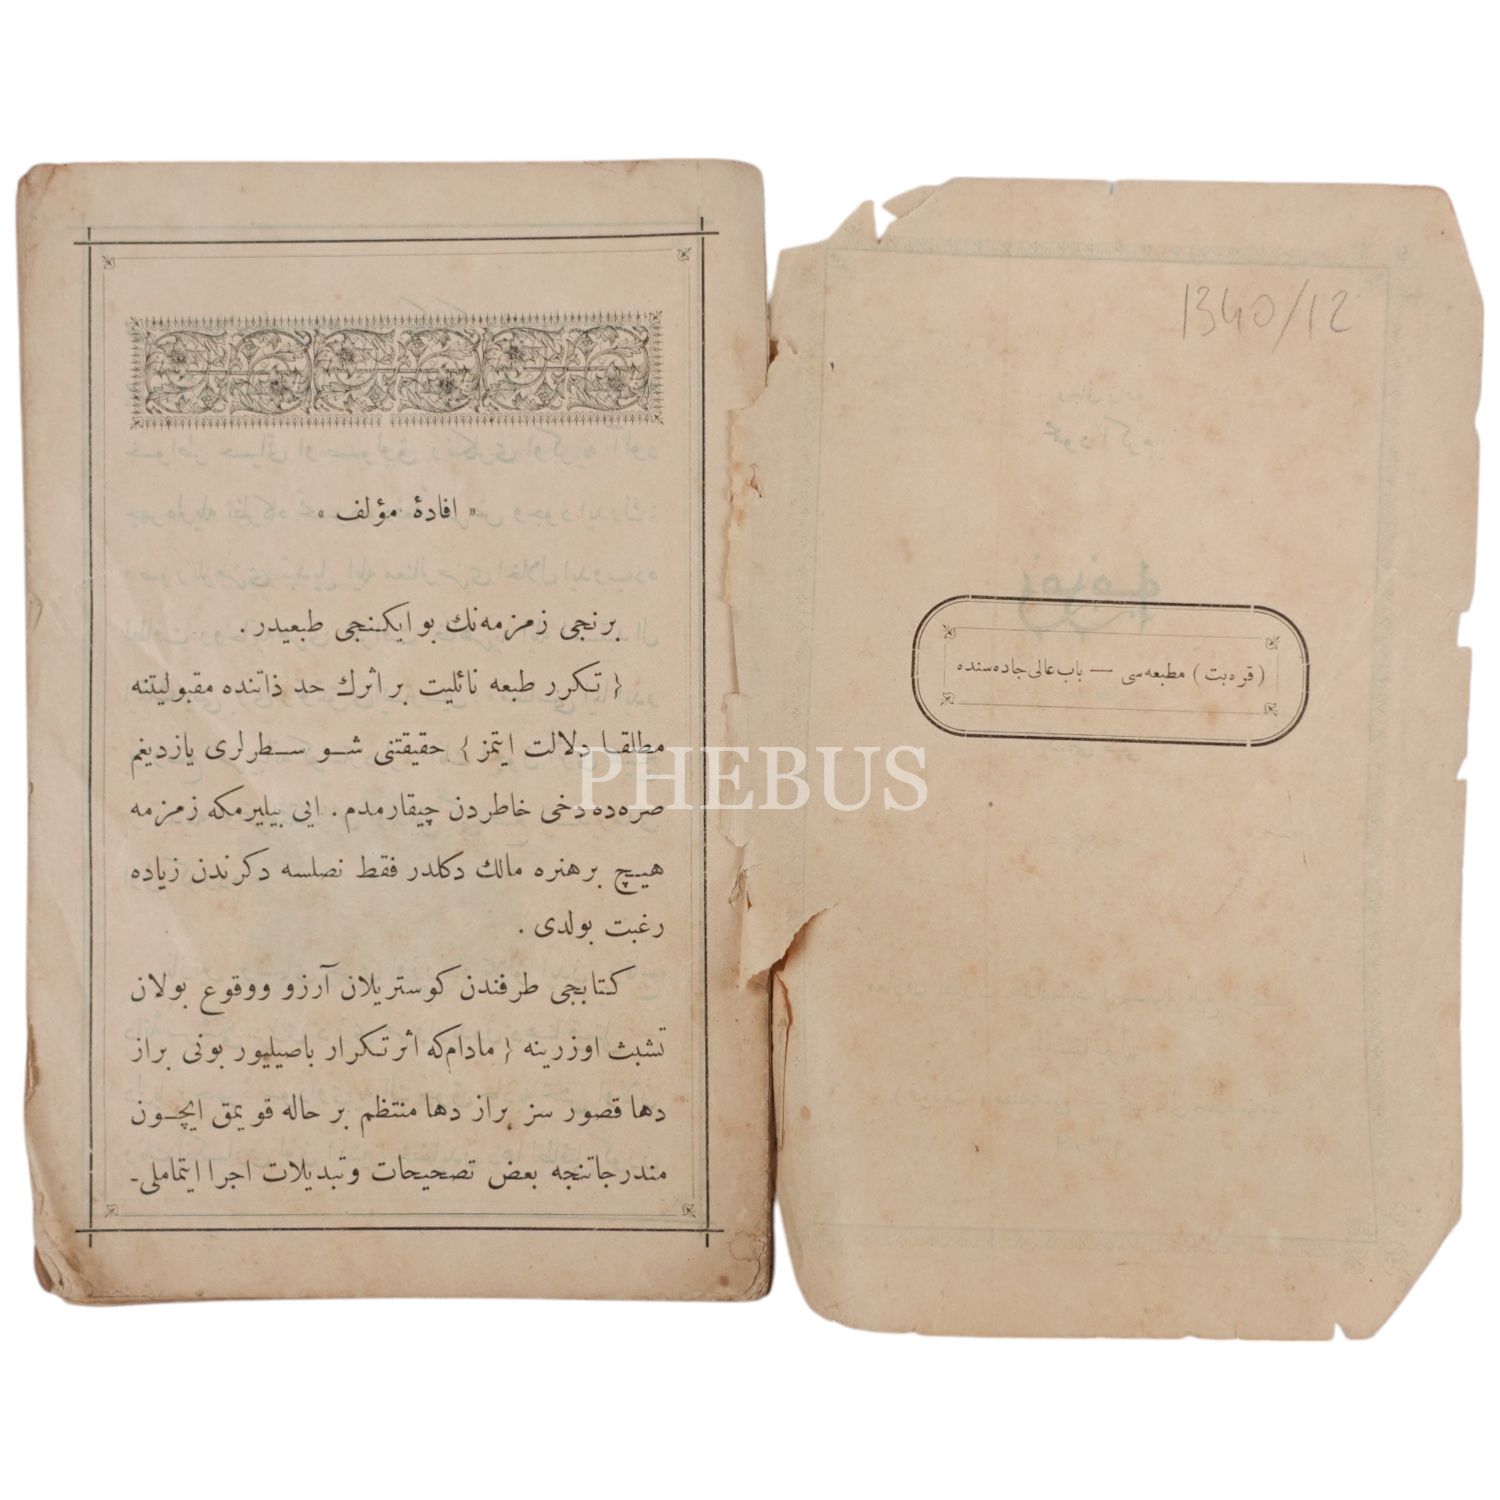 1340/12
( قره‌بت ) مطبعه‌سی — باب عالی جاده‌سنده
« افادهٔ مؤلف »
برنجی زمزمه‌نك بو ایکنجی طبعیدر .
{ تکرر طبعه نائلیت بر اثرك حد ذاتنده مقبولیتنه
مطلقا دلالت ایتمز } حقیقتنی شو سطرلری یازدیغم
صره‌ده دخی خاطردن چیقارمدم . ایی بیلیرمکه زمزمه
هیچ برهنره مالك دکلدر فقط نصلسه دکرندن زیاده
رغبت بولدی .
کتابجی طرفندن کوستریلان آرزو ووقوع بولان
تشبث اوزرینه { مادام‌که اثر تکرار باصیلیور بونی براز
دها قصور سز براز دها منتظم بر حاله قویمق ایچون
مندرجاتنجه بعض تصحیحات وتبدیلات اجرا ایتماملی-
PHEBUS